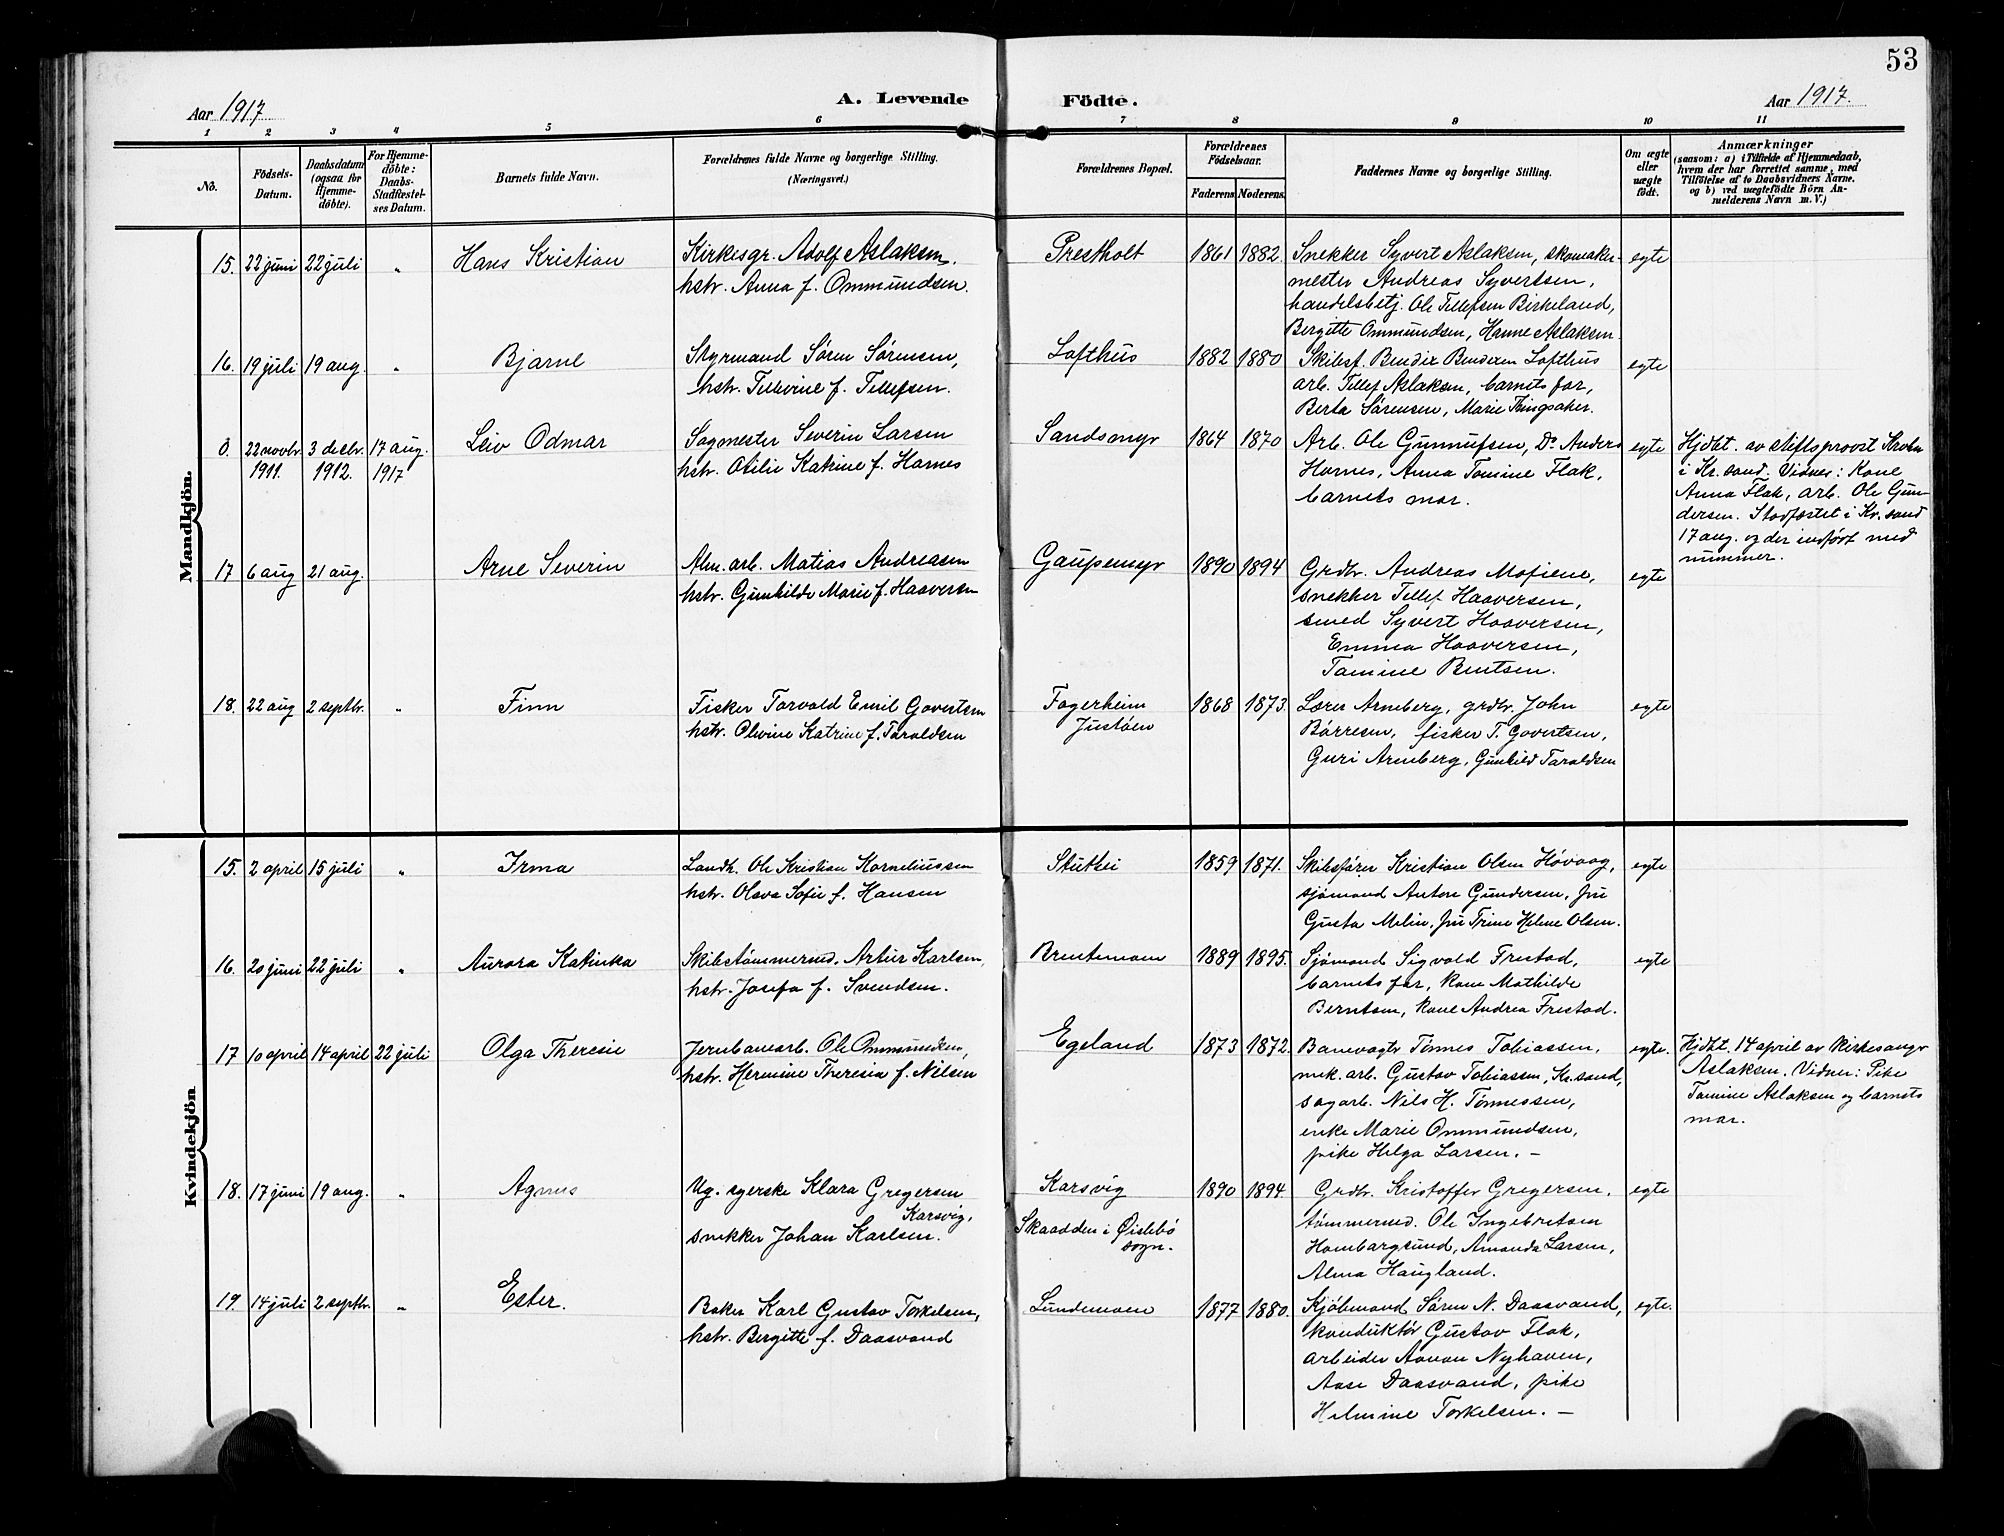 53
Aar 1917
A. Levende Födte.
Aar 1917.
1 2 3 4 5 6 7 8 9 10 11
No.
Födsels-
Datum.
Daabsdatum
(ogsaa for
Hjemme-
döbte).
For Hjemme-
döbte:
Daabs-
Stadfæstel-
ses Datum.
Barnets fulde Navn.
Forældrenes fulde Navne og borgerlige Stilling.
(Næringsvei.)
Forældrenes Bopæl.
Forældrenes
Födselsaar.
Faderens Moderens.
Faddernes Navne og borgerlige Stilling.
Om ægte
eller
uægte
födt.
Anmærkninger
(saasom: a) i Tilfælde af Hjemmedaab,
hvem der har forrettet samme, med
Tilföielse af to Daabsvidners Navne.
og b) ved uægtefödte Börn An-
melderens Navn m.V.)
Mandkjön.
15. 22 juni 22 juli " Hans Kristian
Kirkesgr. Adolf Aslaksen,
hstr. Anna f. Ommundsen.
Prestholt 1861 1882.
Snekker Syvert Aslaksen, skomaker-
mester Andreas Syvertsen,
handelsbetj. Ole Tellefsen Birkeland,
Bergitte Ommundsen, Hanne Aslaksen.
egte
16. 19 juli 19 aug. " Bjarne
Styrmand Søren Sørensen,
hstr. Tellevine f. Tellefsen.
Lofthus 1882 1880
Skibsf. Bendix Bendixen Lofthus
arb. Tellef Aslaksen, barnets far,
Berta Sørensen, Marie Tingsaker.
egte
0. 22 novbr. 3 decbr. 17 aug.
1911. 1912. 1917
Leiv Odmar
Sagmester Severin Larsen
hstr. Otilie Katrine f. Harnes
Sandsmyr 1864 1870
Arb. Ole Gunnufsen, Do Anders
Harnes, Anna Tomine Flak,
barnets mor.
egte
Hjdbt. av stiftsprovst Krohn
i Kr.sand. Vidner: Kone
Anna Flak, arb. Ole Gun-
dersen. Stadfæstet i Kr.sand
17 aug. og der indført med
nummer.
17 6 aug 21 aug. Arne Severin
Alm. arb. Matias Andreasen
hstr. Gunhilde Marie f. Haaversen
Gaupemyr 1890 1894
Grdbr. Andreas Mofiene,
snekker Tellef Haaversen,
smed Syvert Haaversen,
Emma Haaversen,
Tomine Bentsen.
egte
18. 22 aug 2 septbr. " Finn
Fisker Torvald Emil Govertsen
hstr. Olivine Katrine f. Taraldsen
Fagerheim
Justøen
1868 1873.
Lærer Arneberg, grdbr. John
Børresen, fisker T. Govertsen,
Guri Arneberg, Gunhild Taraldsen
egte
Kvindekjön
15. 2 april 15 juli " Irma
Landh. Ole Kristian Korneliussen
hstr. Olava Sofie f. Hansen
Stutsei 1859 1871.
Skibsfører Kristian Olsen Høvaag,
sjømand Anton Gundersen, fru
Gusta Melin, fru Trine Helene Olsen.
egte
16. 20 juni 22 juli " Aurora Katinka
Skibstømmermd. Artur Karlsen,
hstr. Josefa f. Svendsen.
Brentemoen 1889 1895.
Sjømand Sigvald Frestad,
barnets far, kone Mathilde
Berntsen, kone Andrea Frestad.
egte
17 10 april 14 april 22 juli Olga Theresie
Jernbanearb. Ole Ommundsen,
hstr. Hermine Theresia f. Nilsen
Egeland 1873 1872.
Banevogter Tønnes Tobiassen,
mek. arb. Gustav Tobiassen, Kr.sand,
sagarb. Nils H. Tønnessen,
enke Marie Ommundsen,
pike Helga Larsen. –
egte.
Hjdbt. 14 april av kirkesangr
Aslaksen. Vidner: Pike
Tomine Aslaksen og barnets
mor.
18. 17 juni 19 aug. " Agnes
Ug. syerske Klara Gregersen
Karsvig,
snekker Johan Karlsen.
Karsvig
Skaadden i Øislebø
sogn.
1890 1894
Grdbr. Kristoffer Gregersen,
tømmermd. Ole Ingebretsen
Hambargsund, Amanda Larsen,
Alma Haugland.
egte
19. 14 juli 2 septbr. " Ester.
Baker Karl Gustav Torkelsen,
hstr. Bergitte f. Daasvand
Lundemoen 1877 1880.
Kjøbmand Søren N. Daasvand,
konduktør Gustav Flak,
arbeider Aanon Nyhaven,
Aase Daasvand, pike
Helmine Torkelsen. –
egte.